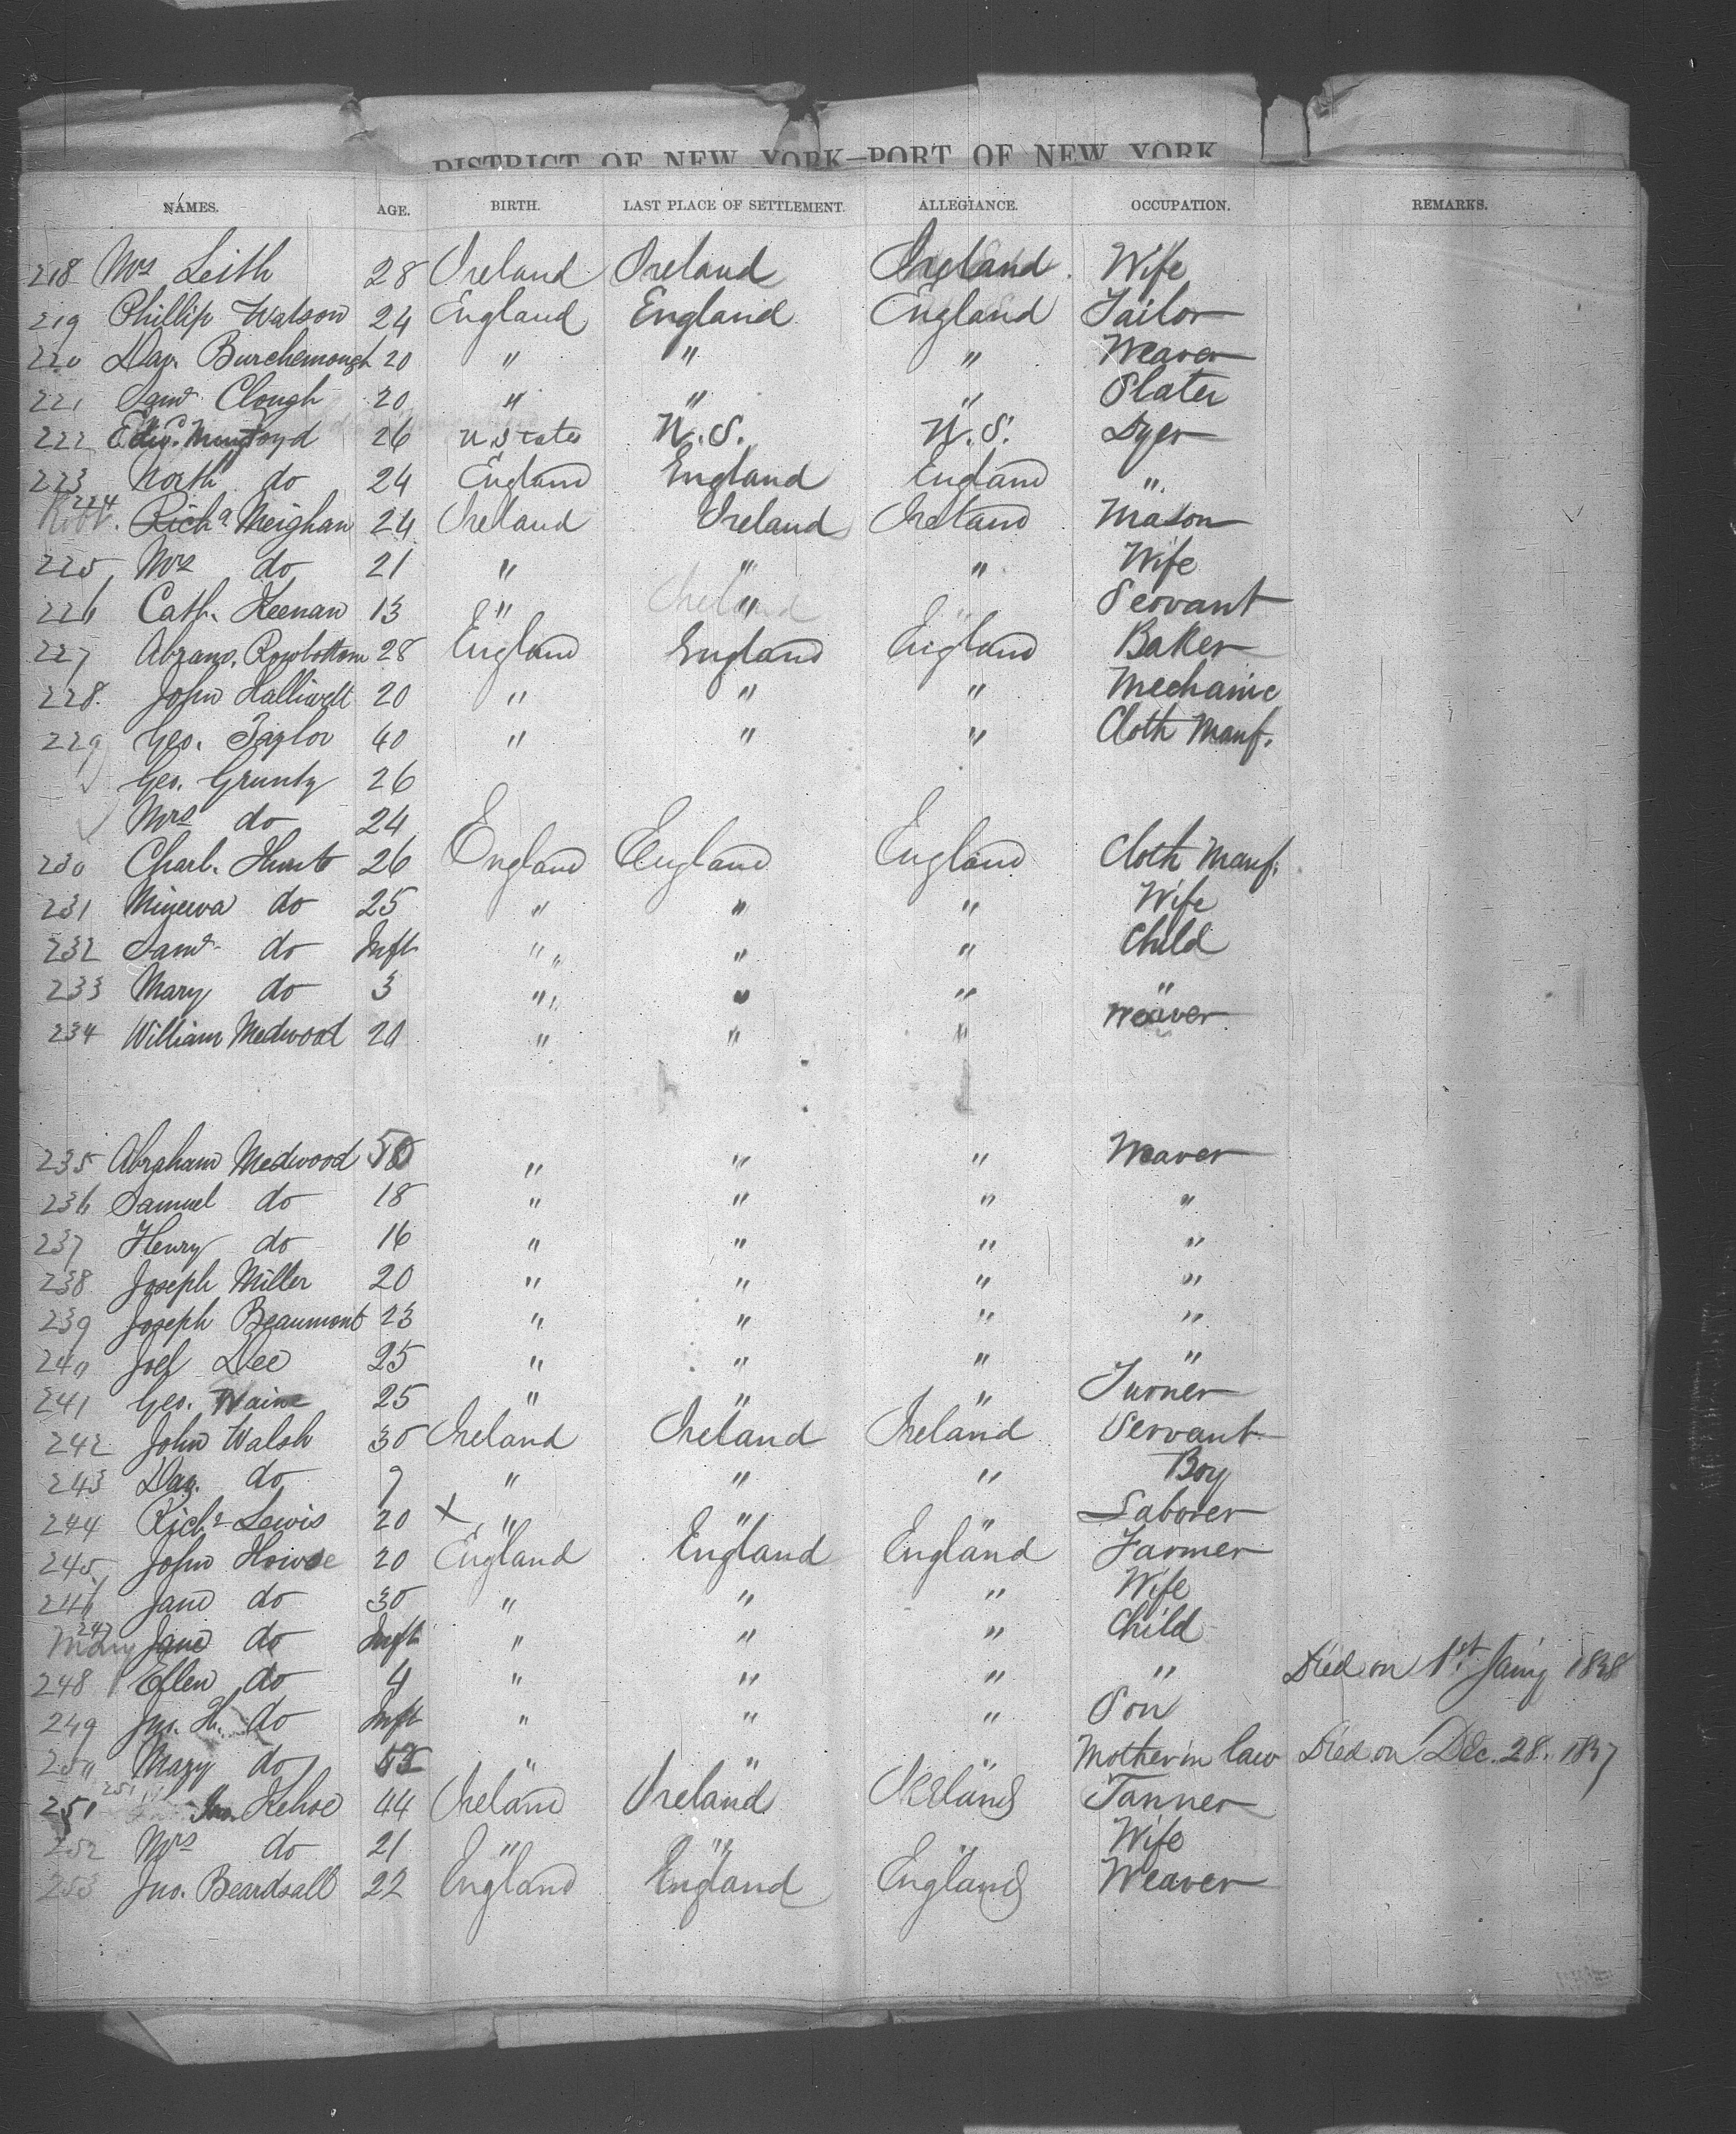 DISTRICT OF NEW YORK—PORT OF NEW YORK
NAMES. AGE. BIRTH. LAST PLACE OF SETTLEMENT. ALLEGIANCE. OCCUPATION. REMARKS.
218 Mrs Leith 28 Ireland Ireland Wife
219 Phillip Watson 24 England England England Tailor
220 Dav. Burchenough 20 " " " Weaver
221 Saml Clough 20 " " " Slater
222 26 U. States U.S. U.S. Dyer
223 North do 24 England England England "
224 Robt. Richd Meighan 24 Ireland Ireland Ireland Mason
225 Mrs do 21 " " " Wife
226 Cath. Keenan 13 " " " Servant
227 Abram. Rowbottom 28 England England England Baker
228. John Halliwell 20 " " " Mechanic
229 Geo. Taylor 40 " " " Cloth Manf.
Geo. Grunty 26
Mrs do 24
230 Charl. Hunt 26 England England England Cloth Manf.
231 Minerva do 25 " " " Wife
232 Saml do Inft " " " Child
233 Mary do 3 " " " "
234 William Medwood 20 " " " Weaver
235 Abraham Medwood 50 " " " Weaver
236 Samuel do 18 " " " "
237 Henry do 16 " " " "
238 Joseph Miller 20 " " " "
239 Joseph Beaumont 23 " " " "
240 Joel Dee 25 " " " "
241 Geo. Waine 25 " " " Turner
242 John Walsh 30 Ireland Ireland Ireland Servant
243 Dav. do 7 " " " Boy
244 Richd Lewis 20 X " " " Laborer
245 John Howse 20 England England England Farmer
246 Jane do 30 " " " Wife
247 Mary Jane do Inft " " " Child
248 Ellen do 4 " " " " Died on 1st Jany 1838
249 Jno. H. do Inft " " " Son
250 Mary do " " " Mother in law Died on Dec. 28. 1837
251 251 Jno. Kehoe 44 Ireland Ireland Ireland Tanner
252 Mrs do 21 " " " Wife
253 Jno. Beardsall 22 England England England Weaver